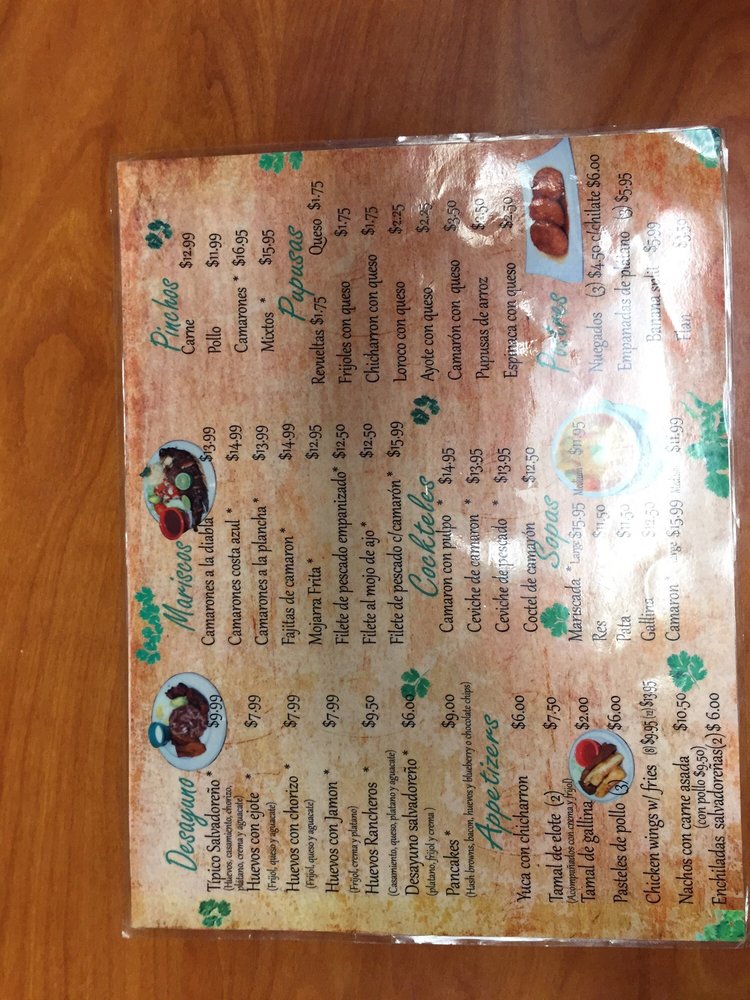 Desayuno
Típico Salvadoreño * $9.99
(Huevos, casamiento, chorizo,
platano, crema y aguacate)
Huevos con ejote * $7.99
(Frijol, queso y aguacate)
Huevos con chorizo * $7.99
(Frijol, queso y aguacate)
Huevos con Jamon * $7.99
(Frijol, crema y platano)
Huevos Rancheros * $9.50
(Casamiento, queso, platano y aguacate)
Desayuno salvadoreño * $6.00
(platano, frijol y crema)
Pancakes * $9.00
(Hash browns, bacon, huevos y blueberry o chocolate chips)
Appetizers
Yuca con chicharron $6.00
Tamal de elote (2) $7.50
(Acompañados con crema y frijol)
Tamal de gallina $2.00
Pasteles de pollo (3) $6.00
Chicken wings w/ fries (8) $9.95 (12) $13.95
Nachos con carne asada $10.50
(con pollo $9.50)
Enchiladas salvadoreñas(2) $ 6.00
Mariscos
Camarones a la diabla $13.99
Camarones costa azul * $14.99
Camarones a la plancha * $13.99
Fajitas de camaron * $14.99
Mojarra Frita * $12.95
Filete de pescado empanizado * $12.50
Filete al mojo de ajo * $12.50
Filete de pescado c/camarón * $15.99
Cockteles
Camaron con pulpo * $14.95
Ceviche de camaron * $13.95
Ceviche de pescado * $13.95
Coctel de camarón $12.50
Sopas
Mariscada * Large $15.95 Medium $11.95
Res $11.50
Pata $11.50
Gallina $12.50
Camaron * Large $15.99 Medium $11.99
Pinchos
Carne $12.99
Pollo $11.99
Camarones * $16.95
Mixtos * $15.95
Pupusas
Revueltas $1.75 Queso $1.75
Frijoles con queso $1.75
Chicharron con queso $1.75
Loroco con queso $2.25
Ayote con queso $2.25
Camarón con queso $3.50
Pupusas de arroz $2.50
Espinaca con queso $2.50
Postres
Nuegados (3) $4.50 c/chilate $6.00
Empanadas de platano (3) $5.95
Banana split $5.99
Flan